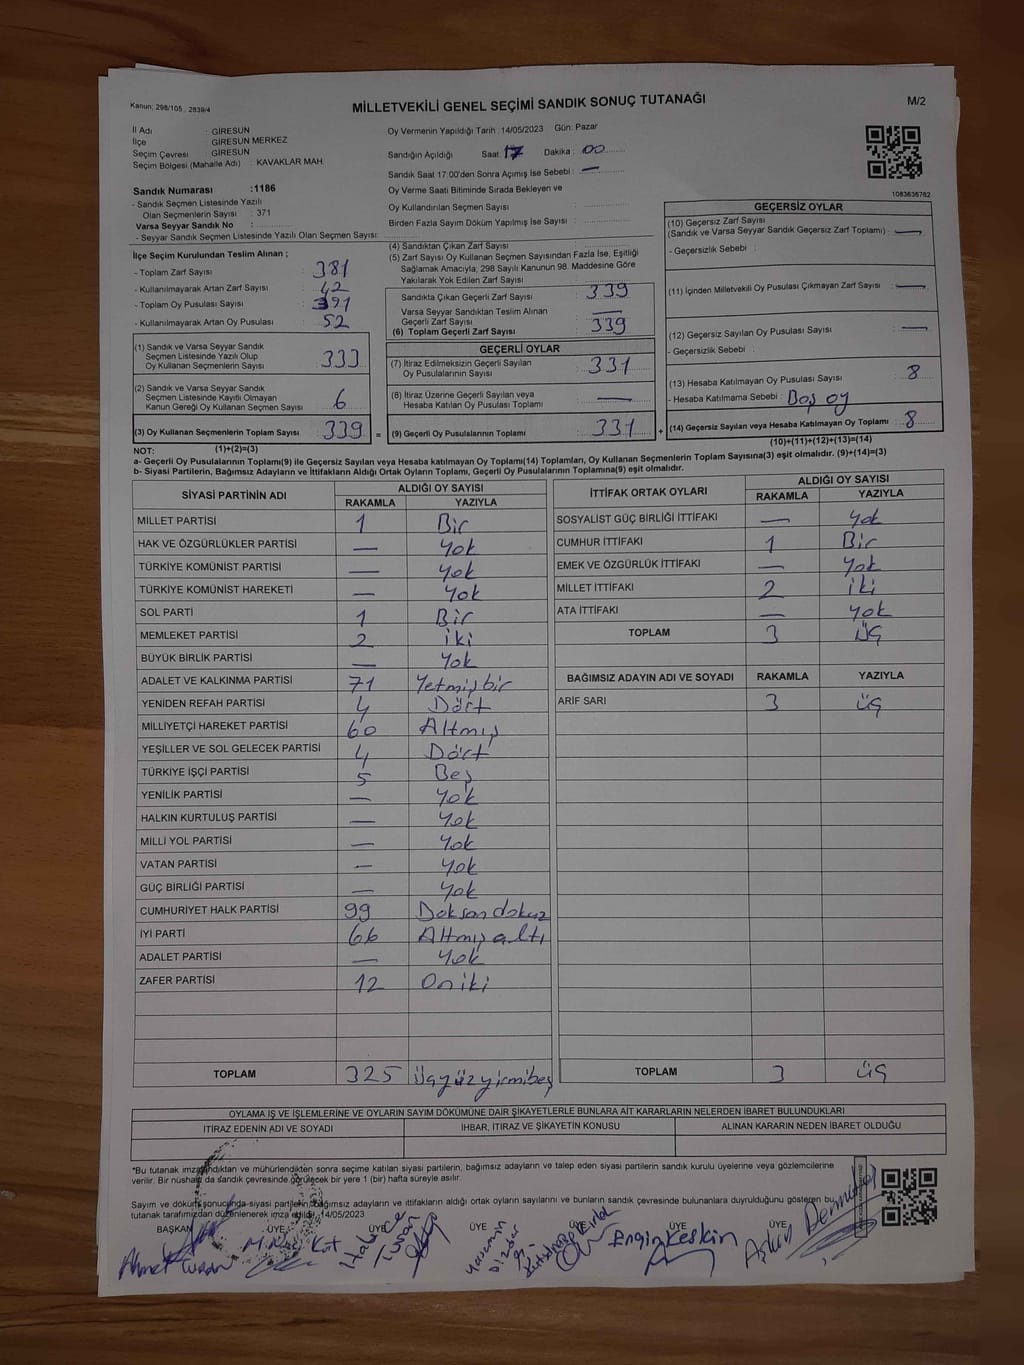 Kanun; 298/105 , 2839/4
MİLLETVEKİLİ GENEL SEÇİMİ SANDIK SONUÇ TUTANAĞI
M/2
İl Adı : GİRESUN
İlçe : GİRESUN MERKEZ
Seçim Çevresi : GİRESUN
Seçim Bölgesi (Mahalle Adı) : KAVAKLAR MAH
Sandık Numarası :1186
- Sandık Seçmen Listesinde Yazılı
Olan Seçmenlerin Sayısı : 371
Varsa Seyyar Sandık No :
- Seyyar Sandık Seçmen Listesinde Yazılı Olan Seçmen Sayısı:
Oy Vermenin Yapıldığı Tarih : 14/05/2023 Gün: Pazar
Sandığın Açıldığı Saat: 17 Dakika : 00
Sandık Saat 17:00'den Sonra Açılmış İse Sebebi : —
Oy Verme Saati Bitiminde Sırada Bekleyen ve
Oy Kullandırılan Seçmen Sayısı :
Birden Fazla Sayım Döküm Yapılmış İse Sayısı :
1083636762
İlçe Seçim Kurulundan Teslim Alınan ;
- Toplam Zarf Sayısı : 381
- Kullanılmayarak Artan Zarf Sayısı : 42
- Toplam Oy Pusulası Sayısı : 391
- Kullanılmayarak Artan Oy Pusulası : 52
(1) Sandık ve Varsa Seyyar Sandık
Seçmen Listesinde Yazılı Olup
Oy Kullanan Seçmenlerin Sayısı : 333
(2) Sandık ve Varsa Seyyar Sandık
Seçmen Listesinde Kayıtlı Olmayan
Kanun Gereği Oy Kullanan Seçmen Sayısı : 6
(3) Oy Kullanan Seçmenlerin Toplam Sayısı : 339 =
(1)+(2)=(3)
(4) Sandıktan Çıkan Zarf Sayısı :
(5) Zarf Sayısı Oy Kullanan Seçmen Sayısından Fazla İse, Eşitliği
Sağlamak Amacıyla; 298 Sayılı Kanunun 98. Maddesine Göre
Yakılarak Yok Edilen Zarf Sayısı :
Sandıkta Çıkan Geçerli Zarf Sayısı : 339
Varsa Seyyar Sandıktan Teslim Alınan
Geçerli Zarf Sayısı : —
(6) Toplam Geçerli Zarf Sayısı : 339
GEÇERLİ OYLAR
(7) İtiraz Edilmeksizin Geçerli Sayılan
Oy Pusulalarının Sayısı : 331
(8) İtiraz Üzerine Geçerli Sayılan veya
Hesaba Katılan Oy Pusulası Toplamı : —
(9) Geçerli Oy Pusulalarının Toplamı : 331 +
GEÇERSİZ OYLAR
(10) Geçersiz Zarf Sayısı
(Sandık ve Varsa Seyyar Sandık Geçersiz Zarf Toplamı) : —
- Geçersizlik Sebebi :
(11) İçinden Milletvekili Oy Pusulası Çıkmayan Zarf Sayısı : —
(12) Geçersiz Sayılan Oy Pusulası Sayısı : —
- Geçersizlik Sebebi :
(13) Hesaba Katılmayan Oy Pusulası Sayısı : 8
- Hesaba Katılmama Sebebi : Boş oy
(14) Geçersiz Sayılan veya Hesaba Katılmayan Oy Toplamı : 8
(10)+(11)+(12)+(13)=(14)
NOT:
a- Geçerli Oy Pusulalarının Toplamı(9) ile Geçersiz Sayılan veya Hesaba katılmayan Oy Toplamı(14) Toplamları, Oy Kullanan Seçmenlerin Toplam Sayısına(3) eşit olmalıdır. (9)+(14)=(3)
b- Siyasi Partilerin, Bağımsız Adayların ve İttifakların Aldığı Ortak Oyların Toplamı, Geçerli Oy Pusulalarının Toplamına(9) eşit olmalıdır.
SİYASİ PARTİNİN ADI ALDIĞI OY SAYISI
RAKAMLA YAZIYLA
MİLLET PARTİSİ 1 Bir
HAK VE ÖZGÜRLÜKLER PARTİSİ — Yok
TÜRKİYE KOMÜNİST PARTİSİ — Yok
TÜRKİYE KOMÜNİST HAREKETİ — Yok
SOL PARTİ 1 Bir
MEMLEKET PARTİSİ 2 iki
BÜYÜK BİRLİK PARTİSİ — Yok
ADALET VE KALKINMA PARTİSİ 71 Yetmişbir
YENİDEN REFAH PARTİSİ 4 Dört
MİLLİYETÇİ HAREKET PARTİSİ 60 Altmış
YEŞİLLER VE SOL GELECEK PARTİSİ 4 Dört
TÜRKİYE İŞÇİ PARTİSİ 5 Beş
YENİLİK PARTİSİ — Yok
HALKIN KURTULUŞ PARTİSİ — Yok
MİLLİ YOL PARTİSİ — Yok
VATAN PARTİSİ — Yok
GÜÇ BİRLİĞİ PARTİSİ — Yok
CUMHURİYET HALK PARTİSİ 99 Doksan dokuz
İYİ PARTİ 66 Altmış altı
ADALET PARTİSİ — Yok
ZAFER PARTİSİ 12 Oniki
TOPLAM 325 Üçyüzyirmibeş
İTTİFAK ORTAK OYLARI ALDIĞI OY SAYISI
RAKAMLA YAZIYLA
SOSYALİST GÜÇ BİRLİĞİ İTTİFAKI — Yok
CUMHUR İTTİFAKI 1 Bir
EMEK VE ÖZGÜRLÜK İTTİFAKI — Yok
MİLLET İTTİFAKI 2 iki
ATA İTTİFAKI — Yok
TOPLAM 3 Üç
BAĞIMSIZ ADAYIN ADI VE SOYADI RAKAMLA YAZIYLA
ARİF SARI 3 üç
TOPLAM 3 üç
OYLAMA İŞ VE İŞLEMLERİNE VE OYLARIN SAYIM DÖKÜMÜNE DAİR ŞİKAYETLERLE BUNLARA AİT KARARLARIN NELERDEN İBARET BULUNDUKLARI
İTİRAZ EDENİN ADI VE SOYADI İHBAR, İTİRAZ VE ŞİKAYETİN KONUSU ALINAN KARARIN NEDEN İBARET OLDUĞU
*Bu tutanak imzalandıktan ve mühürlendikten sonra seçime katılan siyasi partilerin, bağımsız adayların ve talep eden siyasi partilerin sandık kurulu üyelerine veya gözlemcilerine
verilir. Bir nüshası da sandık çevresinde görülecek bir yere 1 (bir) hafta süreyle asılır.
Sayım ve döküm sonucunda siyasi partilerin, bağımsız adayların ve ittifakların aldığı ortak oyların sayılarını ve bunların sandık çevresinde bulunanlara duyrulduğunu gösteren bu
tutanak tarafımızdan düzenlenerek imza edildi. 14/05/2023
BAŞKAN ÜYE ÜYE ÜYE ÜYE ÜYE ÜYE
Ahmet Turan
Hatice Turan
Yasemin
Engin Keskin
Aşkın